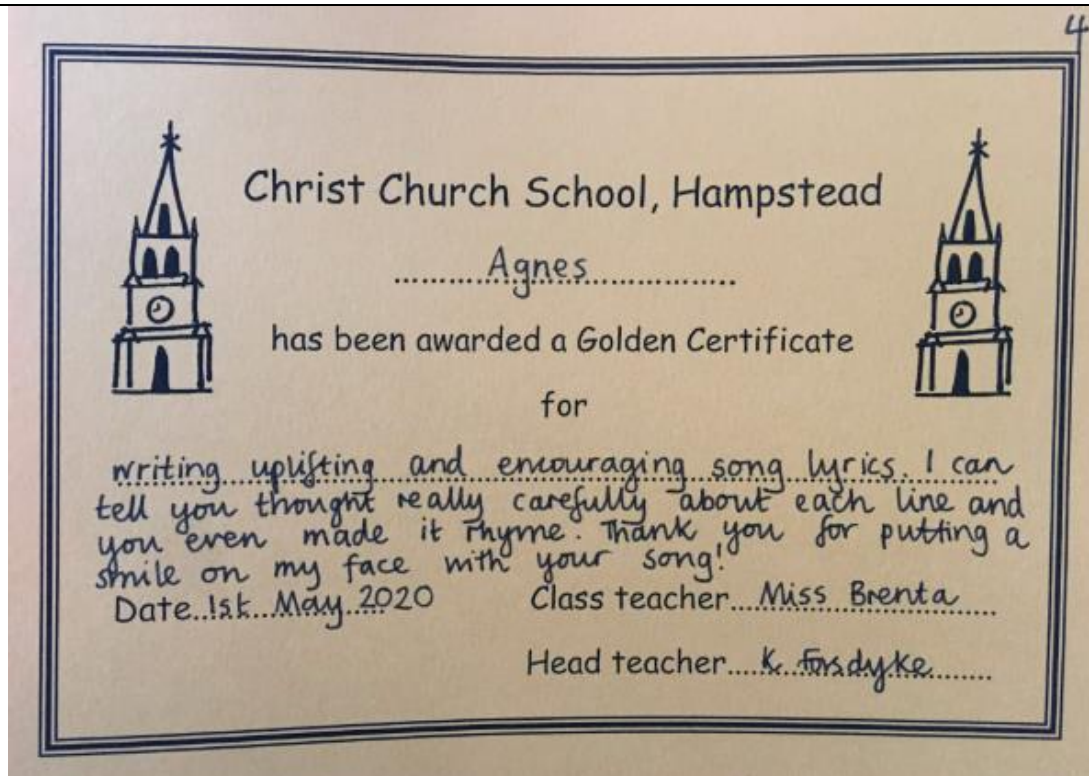 4
Christ Church School, Hampstead
Agnes
has been awarded a Golden Certificate
for
writing uplifting and encouraging song lyrics. I can
tell you thought really carefully about each line and
you even made it rhyme. Thank you for putting a
smile on my face with your song!
Date 1st May 2020 Class teacher Miss Brenta
Head teacher K. Forsdyke